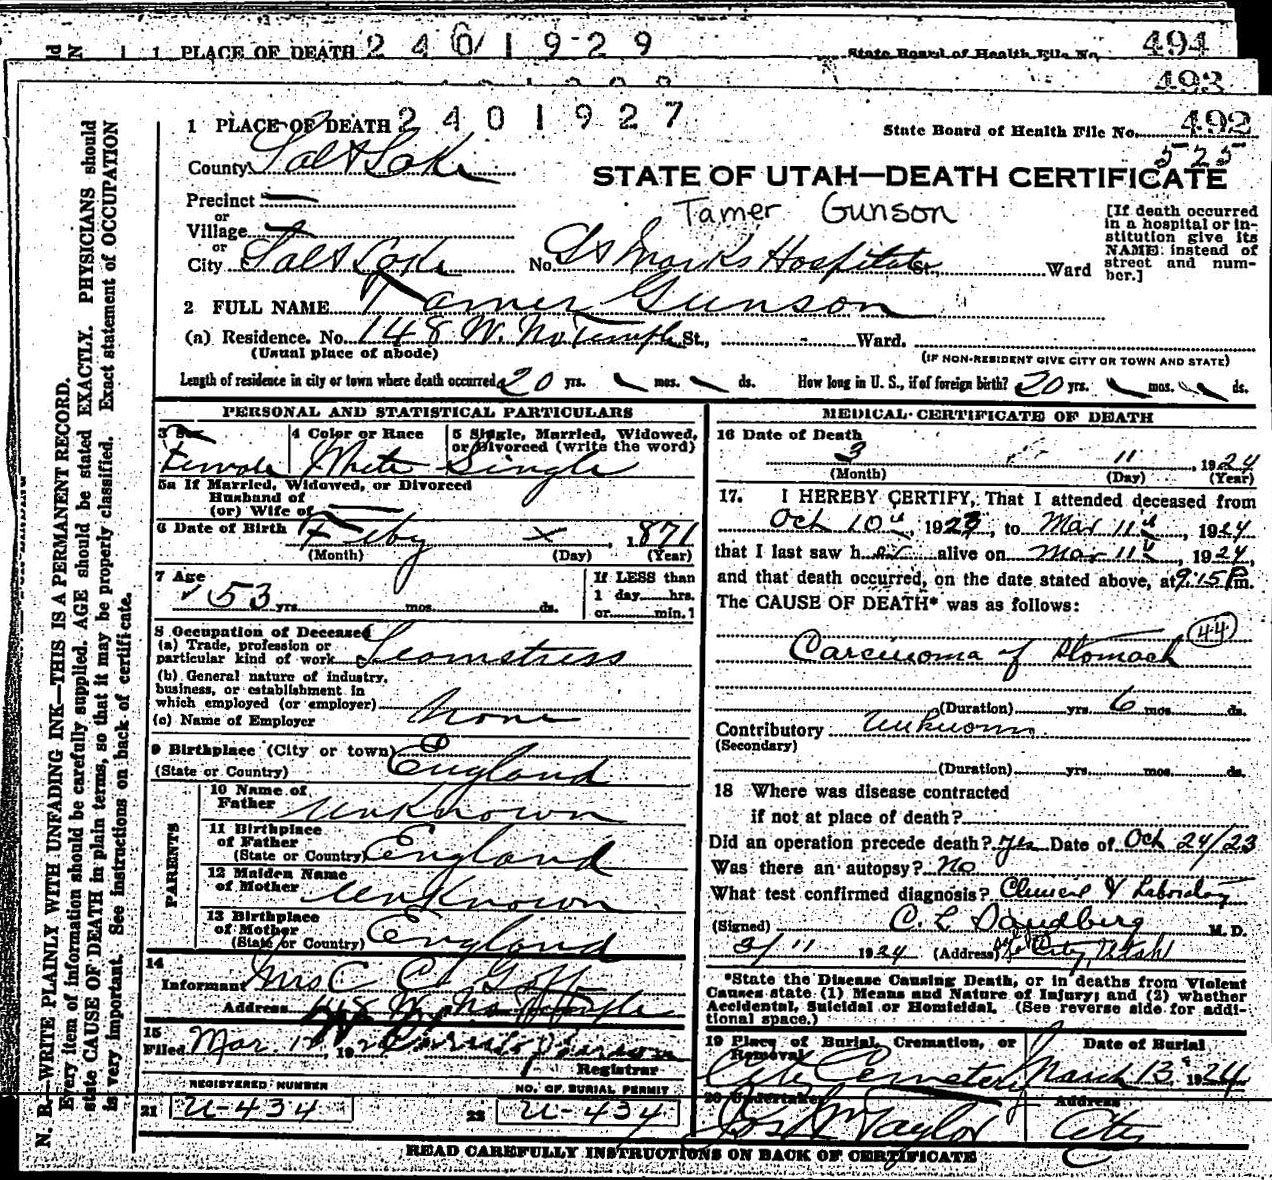 1 PLACE OF DEATH 2401929 State Board of Health File No. 494
493
1 PLACE OF DEATH 2401927 State Board of Health File No. 492
525
County Salt Lake
STATE OF UTAH—DEATH CERTIFICATE
Precinct —
or
Village —
or
City Salt Lake No. St Marks Hospital St., Ward
Tamer Gunson
[If death occurred
in a hospital or in-
stitution give its
NAME instead of
street and num-
ber.]
2 FULL NAME Tamer Gunson
(a) Residence. No. 148 W. No Temple St., Ward.
(Usual place of abode) (IF NON-RESIDENT GIVE CITY OR TOWN AND STATE)
Length of residence in city or town where death occurred 20 yrs. mos. ds. How long in U. S., if of foreign birth? 20 yrs. mos. ds.
PERSONAL AND STATISTICAL PARTICULARS
3 Sex
Female
4 Color or Race
White
5 Single, Married, Widowed,
or Divorced (write the word)
Single
5a If Married, Widowed, or Divorced
Husband of
(or) Wife of —
6 Date of Birth Feby x 1871
(Month) (Day) (Year)
7 Age
53 yrs. mos. ds.
If LESS than
1 day hrs.
or min.
8 Occupation of Deceased
(a) Trade, profession or
particular kind of work Seamstress
(b) General nature of industry,
business, or establishment in
which employed (or employer)
(c) Name of Employer None
9 Birthplace (City or town)
(State or Country) England
PARENTS
10 Name of
Father Unknown
11 Birthplace
of Father
(State or Country) England
12 Maiden Name
of Mother Unknown
13 Birthplace
of Mother
(State or Country) England
14
Informant Mrs C C Goff
Address 148 W. No Temple
15
Filed Mar. 12, 192
Registrar
REGISTERED NUMBER NO. OF BURIAL PERMIT
21 U-434 22 U-434
MEDICAL CERTIFICATE OF DEATH
16 Date of Death
3 11, 1924
(Month) (Day) (Year)
17. I HEREBY CERTIFY, That I attended deceased from
Oct 10th, 1923, to Mar 11th, 1924
that I last saw her alive on Mar 11th, 1924,
and that death occurred, on the date stated above, at 9:15 P.m.
The CAUSE OF DEATH* was as follows:
44
Carcinoma of Stomach
(Duration) yrs. 6 mos. ds.
Contributory Unknown
(Secondary)
(Duration) yrs. mos. ds.
18 Where was disease contracted
if not at place of death?
Did an operation precede death? Yes Date of Oct 24/23
Was there an autopsy? No
What test confirmed diagnosis? Clinical & Laboratory
(Signed) C. L. Sandberg M. D.
3/11 1924 (Address) City, Utah
*State the Disease Causing Death, or in deaths from Violent
Causes state (1) Means and Nature of Injury; and (2) whether
Accidental, Suicidal or Homicidal. (See reverse side for addi-
tional space.)
19 Place of Burial, Cremation, or
Removal
City Cemetery
Date of Burial
March 13 1924
20 Undertaker
Jos Wm Taylor
Address
City
READ CAREFULLY INSTRUCTIONS ON BACK OF CERTIFICATE
N. B.—WRITE PLAINLY WITH UNFADING INK—THIS IS A PERMANENT RECORD.
Every item of information should be carefully supplied. AGE should be stated EXACTLY. PHYSICIANS should
state CAUSE OF DEATH in plain terms, so that it may be properly classified. Exact statement of OCCUPATION
is very important. See instructions on back of certificate.